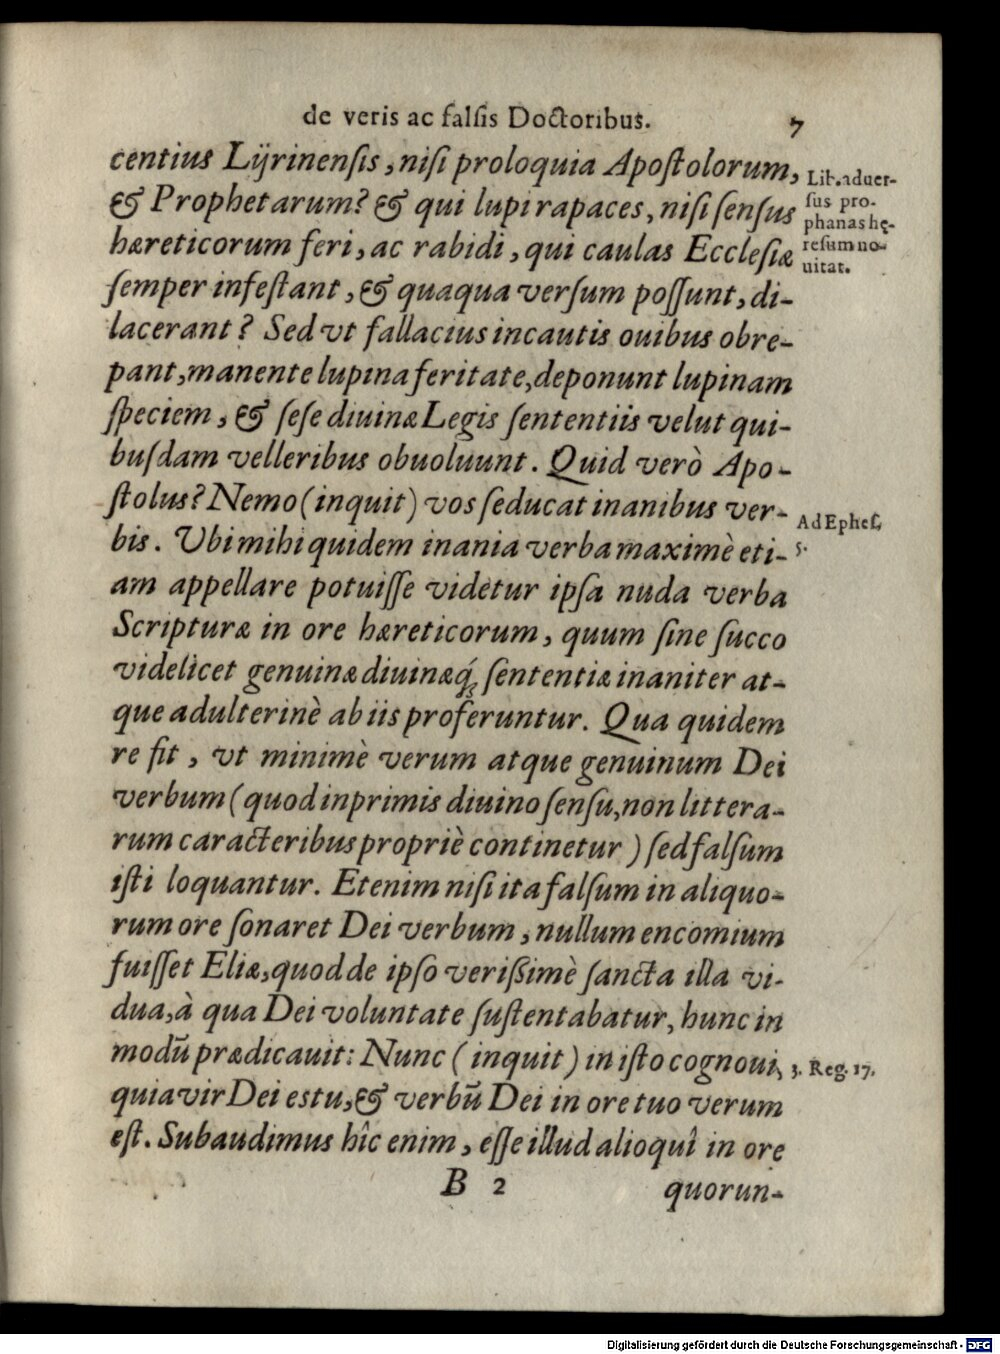 de veris ac falsis Doctoribus. 7
centius Lÿrinensis, nisi proloquia Apostolorum,
& Prophetarum? & qui lupi rapaces, nisi sensus
hæreticorum feri, ac rabidi, qui caulas Ecclesiæ
semper infestant, & quaqua versum possunt, di-
lacerant? Sed vt fallacius incautis ouibus obre-
pant, manente lupina feritate, deponunt lupinam
speciem, & sese diuinæ Legis sententiis velut qui-
busdam velleribus obuoluunt. Quid verò Apo-
stolus? Nemo (inquit) vos seducat inanibus ver-
bis. Vbi mihi quidem inania verba maximè eti-
am appellare potuisse videtur ipsa nuda verba
Scripturæ in ore hæreticorum, quum sine succo
videlicet genuinæ diuinæq́; sententiæ inaniter at-
que adulterinè ab iis proferuntur. Qua quidem
re fit, vt minimè verum atque genuinum Dei
verbum (quod inprimis diuino sensu, non littera-
rum caracteribus propriè continetur) sed falsum
isti loquantur. Etenim nisi ita falsum in aliquo-
rum ore sonaret Dei verbum, nullum encomium
fuisset Eliæ, quod de ipso verißimè sancta illa vi-
dua, à qua Dei voluntate sustentabatur, hunc in
modũ prædicauit: Nunc (inquit) in isto cognoui,
quia vir Dei es tu, & verbũ Dei in ore tuo verum
est. Subaudimus hîc enim, esse illud alioquî in ore
B 2 quorun-
Lib. aduer-
sus pro-
phanas hę-
resum no-
uitat.
Ad Ephes.
5.
3. Reg. 17.
Digitalisierung gefördert durch die Deutsche Forschungsgemeinschaft - DFG